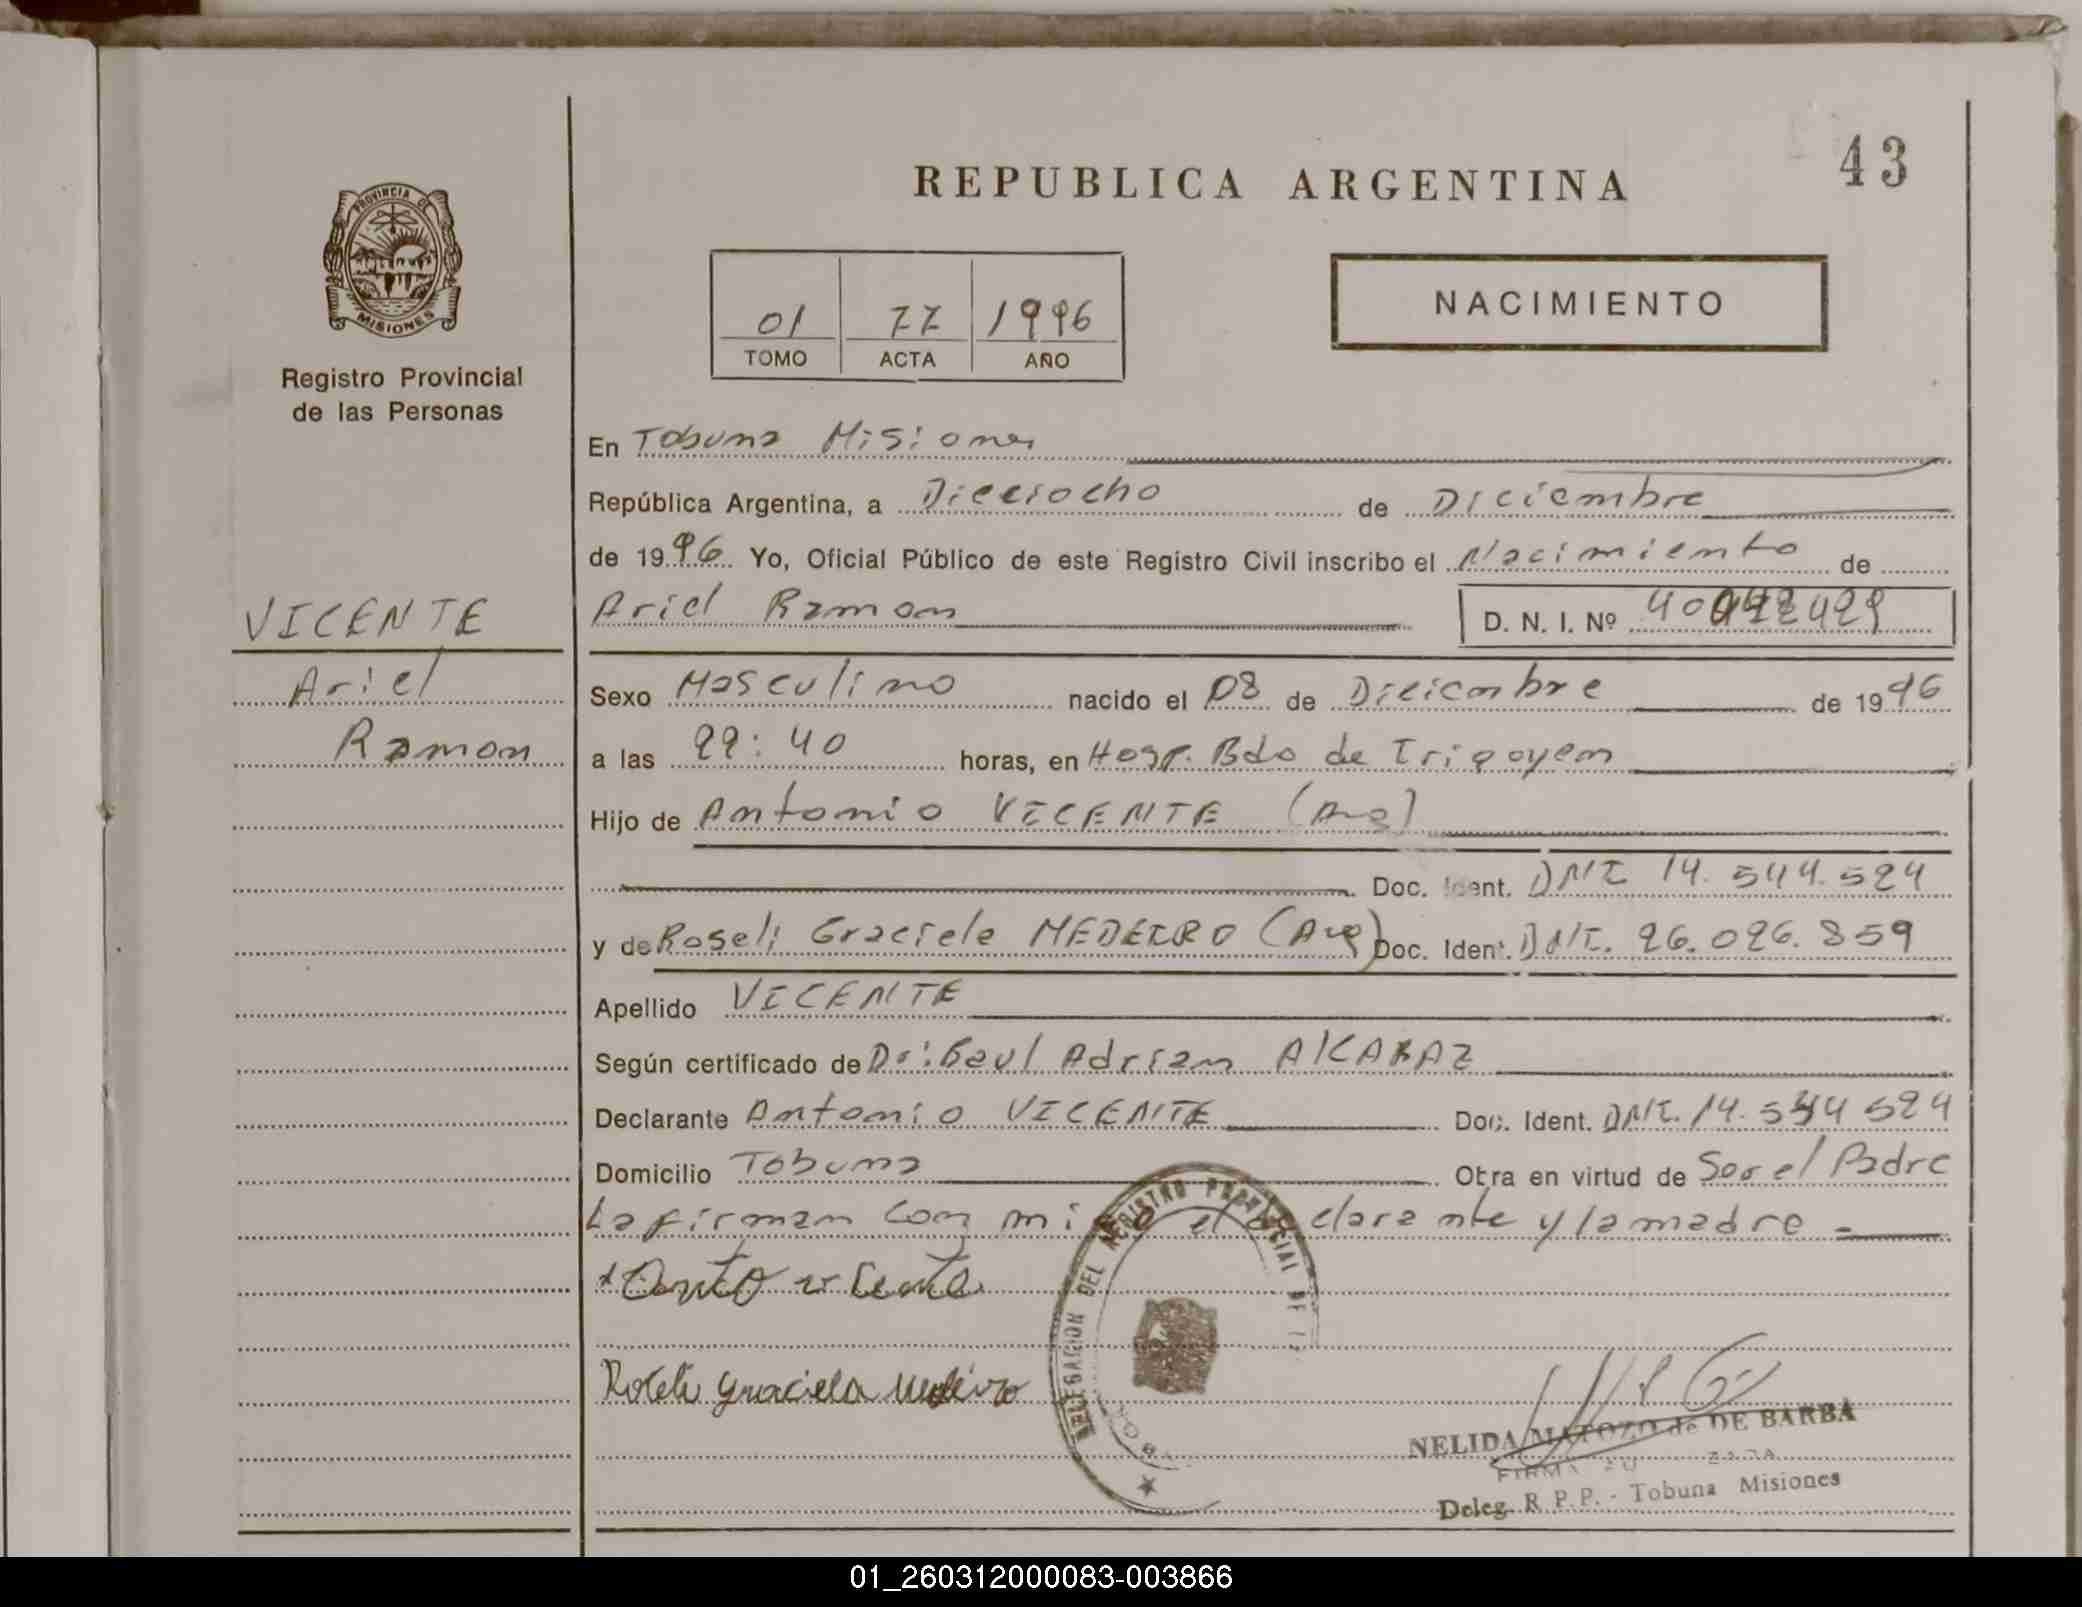 43
REPUBLICA ARGENTINA
PROVINCIA DE
MISIONES
Registro Provincial
de las Personas
01 77 1996
TOMO ACTA AÑO
NACIMIENTO
En Tobuna Misiones
República Argentina, a Dieciocho de Diciembre
de 1996 Yo, Oficial Público de este Registro Civil inscribo el Nacimiento de
VICENTE
Ariel Ramon D. N. I. Nº
Ariel
Ramon
Sexo Masculino nacido el 08 de Diciembre de 1996
a las 22:40 horas, en Hosp. Bdo de Irigoyen
Hijo de Antonio VICENTE (Arg)
Doc. Ident. DNI 14.544.524
y de Roseli Graciela MEDEIRO (Arg) Doc. Ident. DNI. 26.026.859
Apellido VICENTE
Según certificado de Dr: Adrian ALCARAZ
Declarante Antonio VICENTE Doc. Ident. DNI. 14.544 524
Domicilio Tobuna Obra en virtud de Ser el Padre
La firman con migo el declarante y la madre =
Roseli Graciela Medeiro
DELEGACION DEL REGISTRO PROVINCIAL DE
NELIDA MATOZO de DE BARBA
Deleg. R.P.P. - Tobuna Misiones
01_260312000083-003866